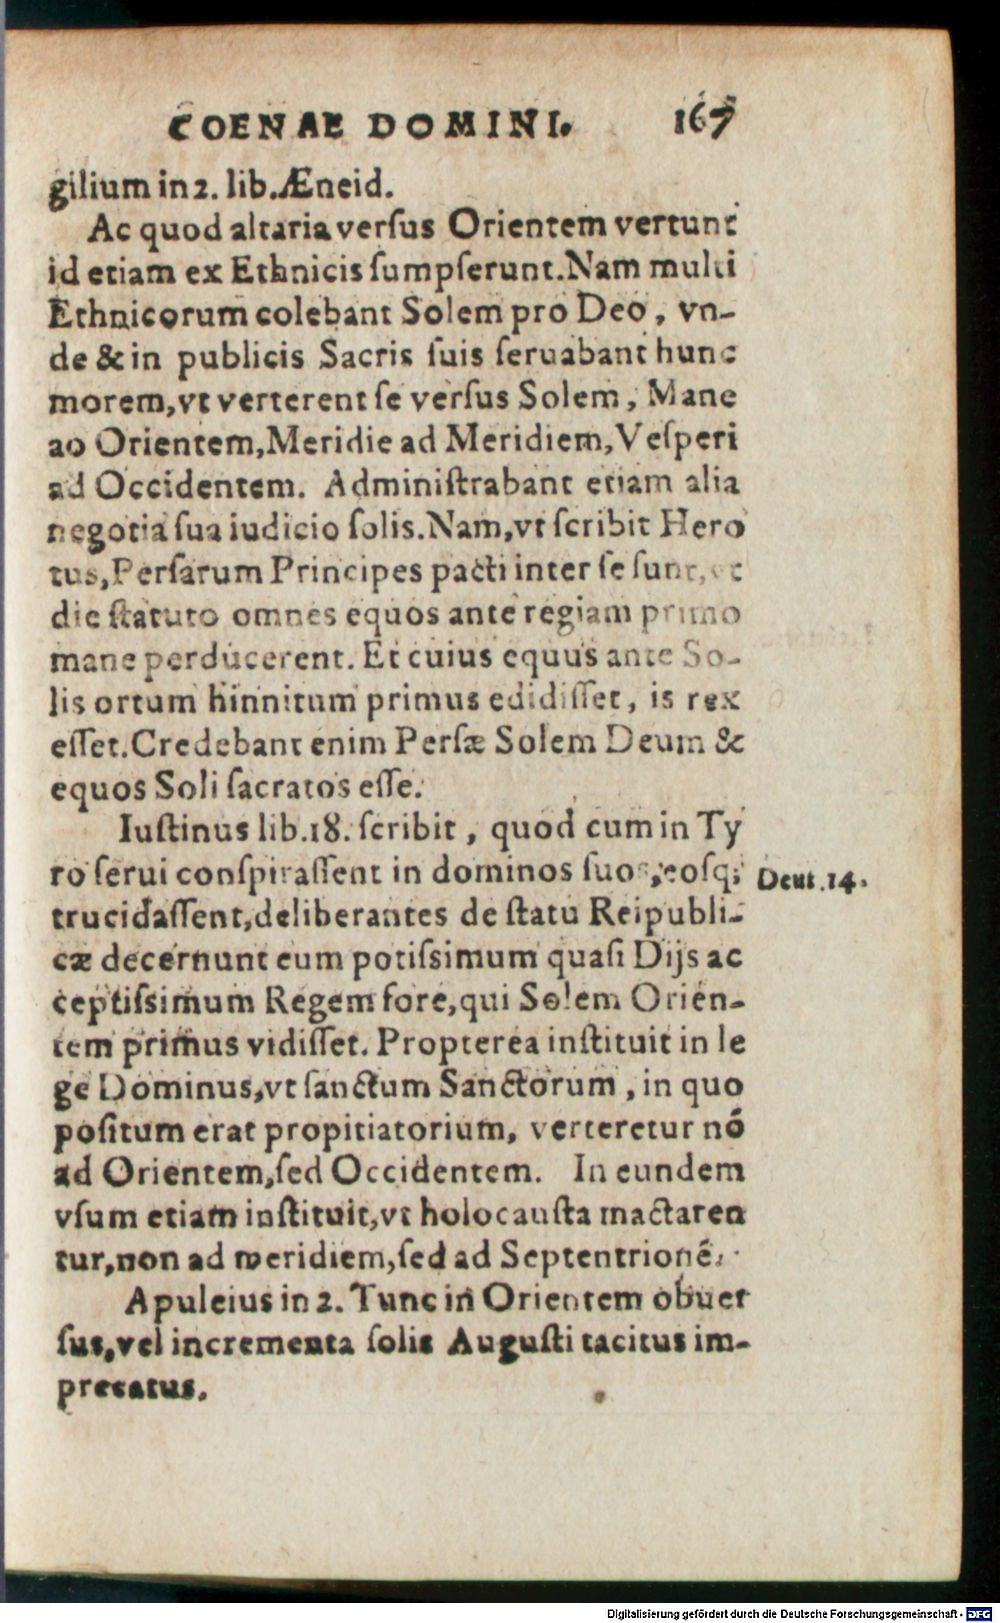 COENAE DOMINI. 167
gilium in 2. lib. Æneid.
Ac quod altaria versus Orientem vertunt
id etiam ex Ethnicis sumpserunt. Nam multi
Ethnicorum colebant Solem pro Deo, vn-
de & in publicis Sacris suis seruabant hunc
morem, vt verterent se versus Solem, Mane
ao Orientem, Meridie ad Meridiem, Vesperi
ad Occidentem. Administrabant etiam alia
negotia sua iudicio solis. Nam, vt scribit Hero
tus, Persarum Principes pacti inter se sunt, vt
die statuto omnes equos ante regiam primo
mane perducerent. Et cuius equus ante So-
lis ortum hinnitum primus edidisset, is rex
esset. Credebant enim Persæ Solem Deum &
equos Soli sacratos esse.
Iustinus lib. 18. scribit, quod cum in Ty
ro serui conspirassent in dominos suos, eosq;
Deut. 14.
trucidassent, deliberantes de statu Reipubli-
cæ decernunt eum potissimum quasi Dijs ac
ceptissimum Regem fore, qui Solem Orien-
tem primus vidisset. Propterea instituit in le
ge Dominus, vt sanctum Sanctorum, in quo
positum erat propitiatorium, verteretur nõ
ad Orientem, sed Occidentem. In eundem
vsum etiam instituit, vt holocausta mactaren
tur, non ad meridiem, sed ad Septentrionẽ.
Apuleius in 2. Tunc in Orientem obuer
sus, vel incrementa solis Augusti tacitus im-
precatus.
Digitalisierung gefördert durch die Deutsche Forschungsgemeinschaft - DFG